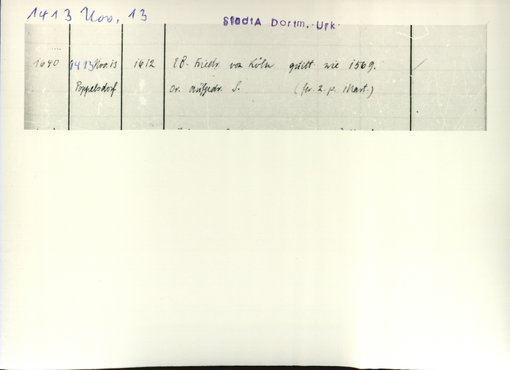 1413 Nov. 13
StadtA Dortm. Urk.
1640 1413 Nov. 13 1612 EB. Friedr. von Köln quitt. wie 1569.
Poppelsdorf Or. aufgedr. S. (fer. 2. p. Mart.)